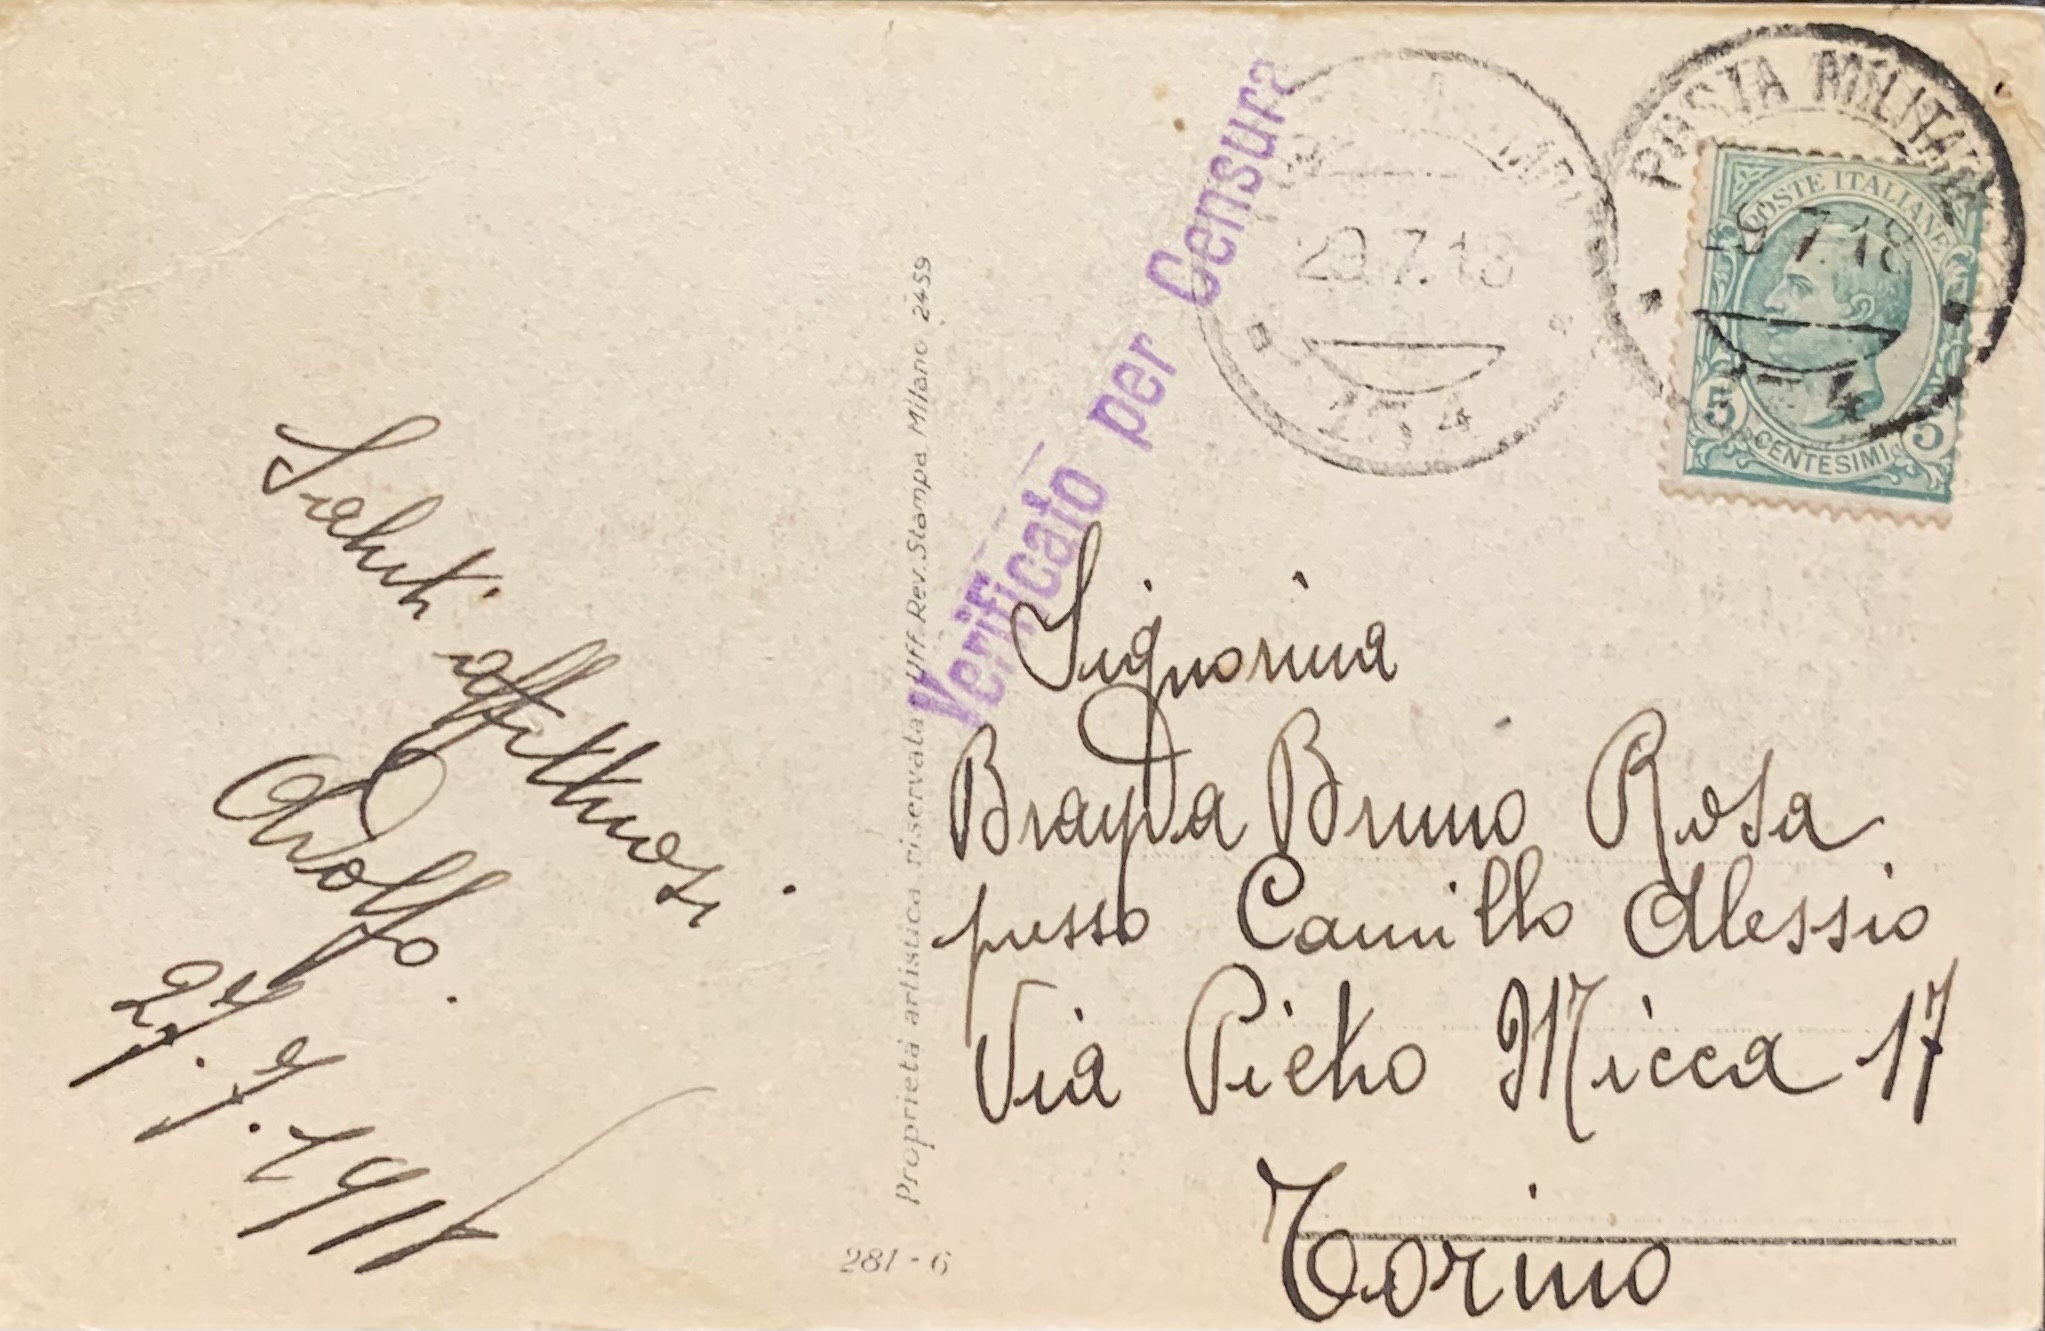 Saluti affettuosi
Adolfo.
29.7.1918
Proprietà artistica riservata Uff. Rev. Stampa Milano 2459
281-6
Verificato per Censura
29.7.18
POSTA MILITARE
29.7.18
POSTE ITALIANE
5 CENTESIMI 5
Signorina
Brayda Bruno Rosa
presso Camillo Alessio
Via Pietro Micca 17
Torino